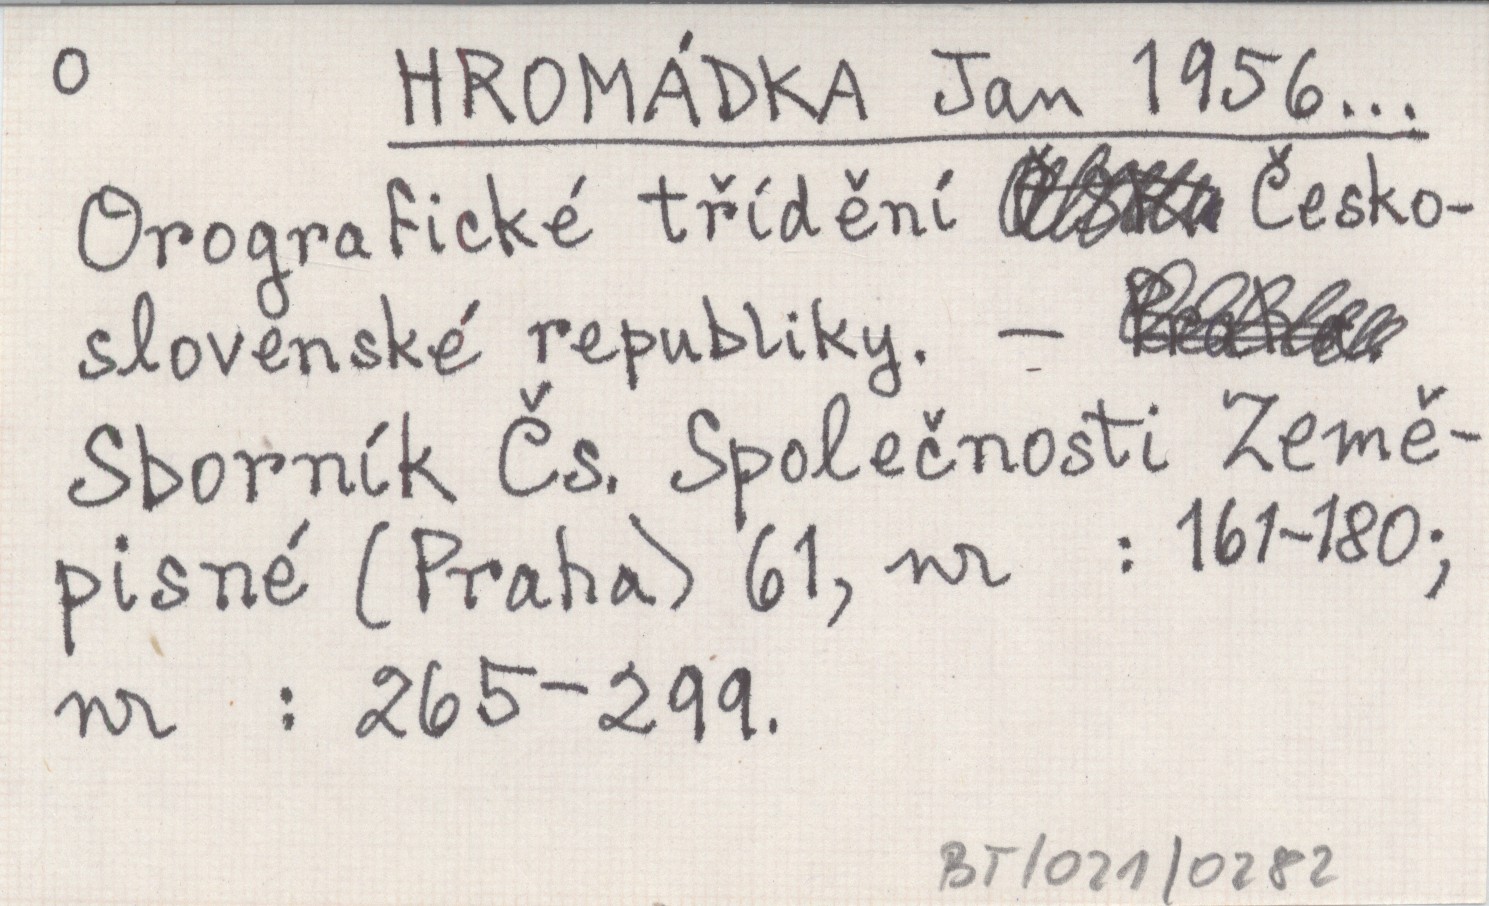 O HROMÁDKA Jan 1956...
Orografické třídění Česko-
slovenské republiky. –
Sborník Čs. Společnosti Země-
pisné (Praha) 61, nr : 161-180;
nr : 265-299.
BT/021/0282